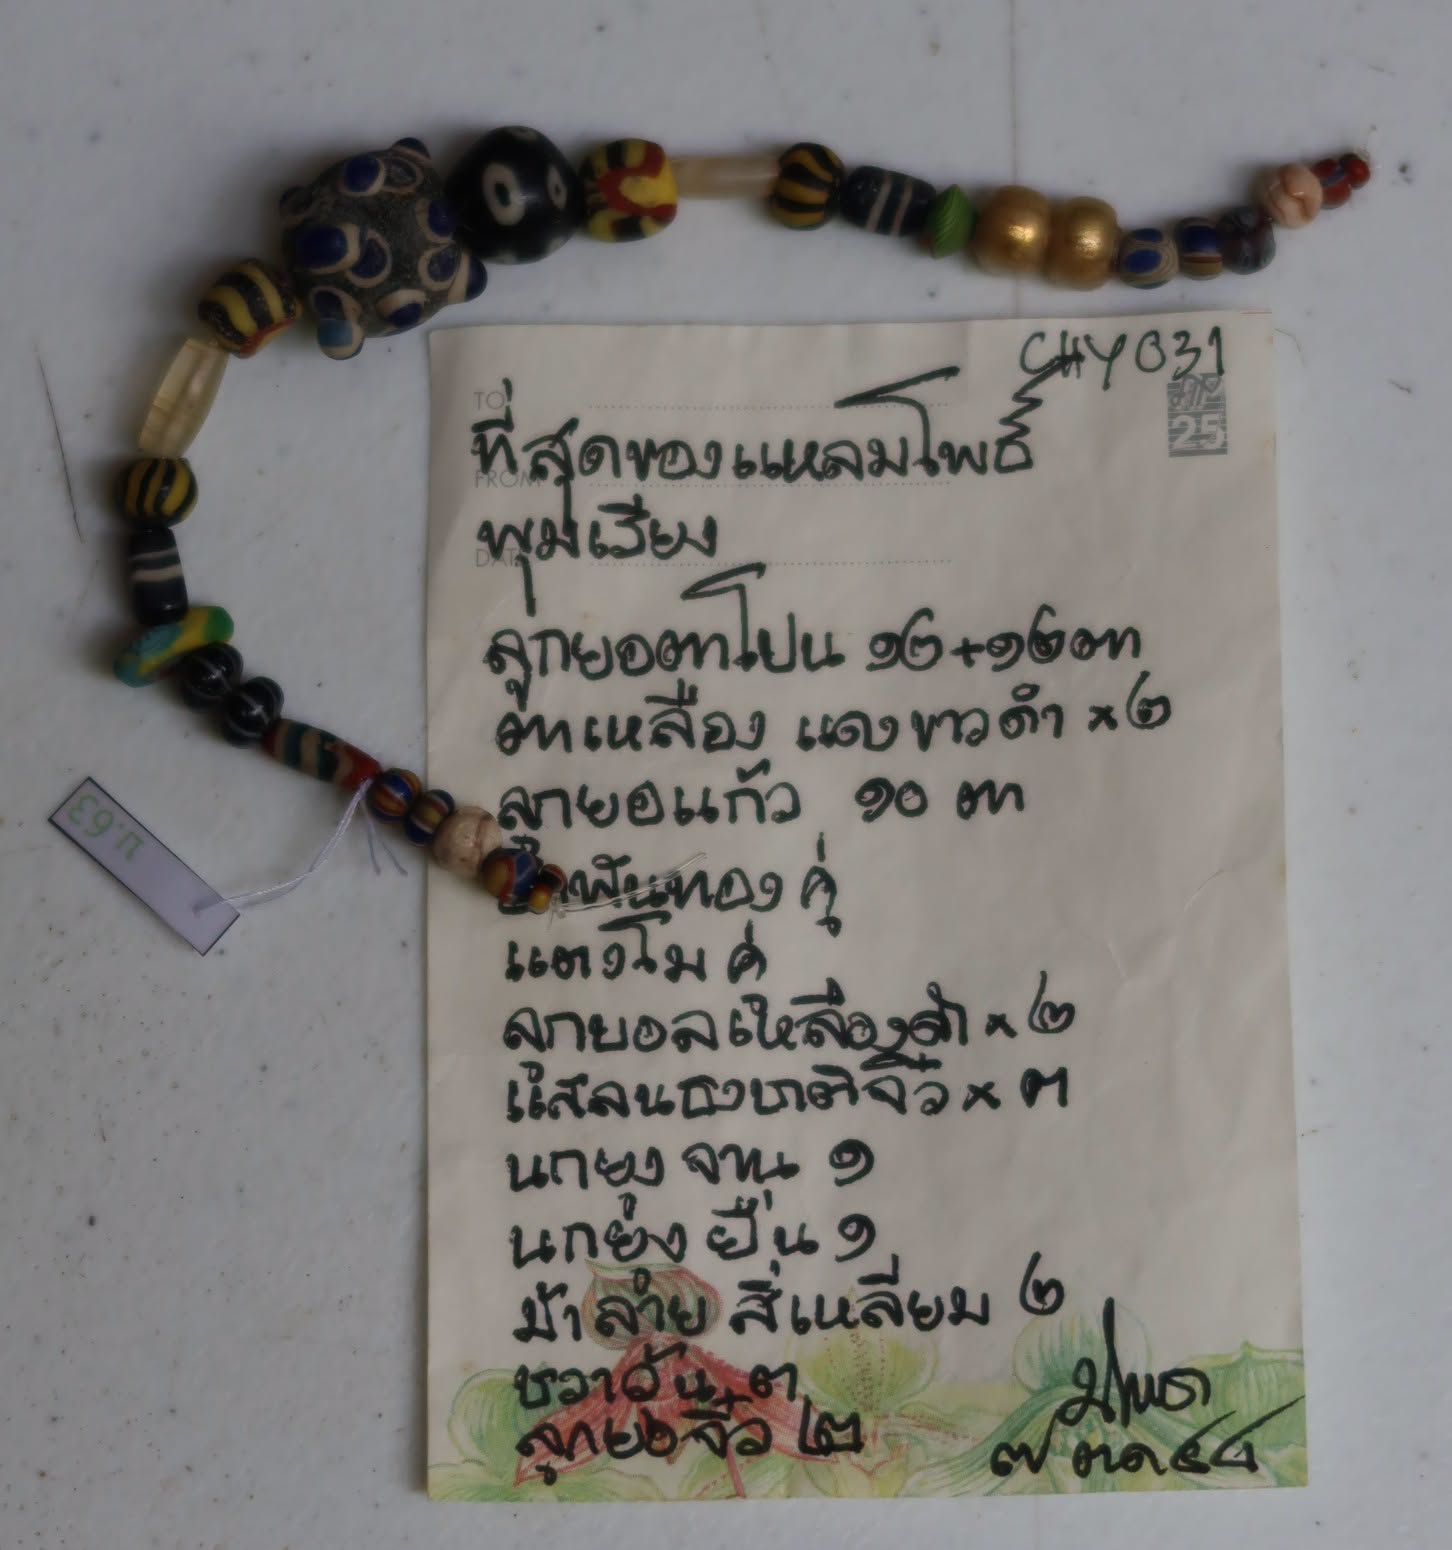 CHY 031
25
TO
ที่สุดของแหลมโพธิ์
FROM
พุมเรียง
ลูกยอตาโปน ๑๖+๑๖ตา
ตาเหลือง แดงขาวดำ x ๒
ลูกยอแก้ว ๑๐ ตา
ฟันทอง คู่
แตงโม คู่
ลูกยอลเหลืองดำ x ๒
แสลนธงชาติจิ๋ว x ๓
นกยูง จาน ๑
นกยูง ยืน ๑
ม้าลาย สี่เหลี่ยม ๒
ชวาวัน ๓
ลูกยอจิ๋ว ๒
๗ ตค ๕๔
บ.63